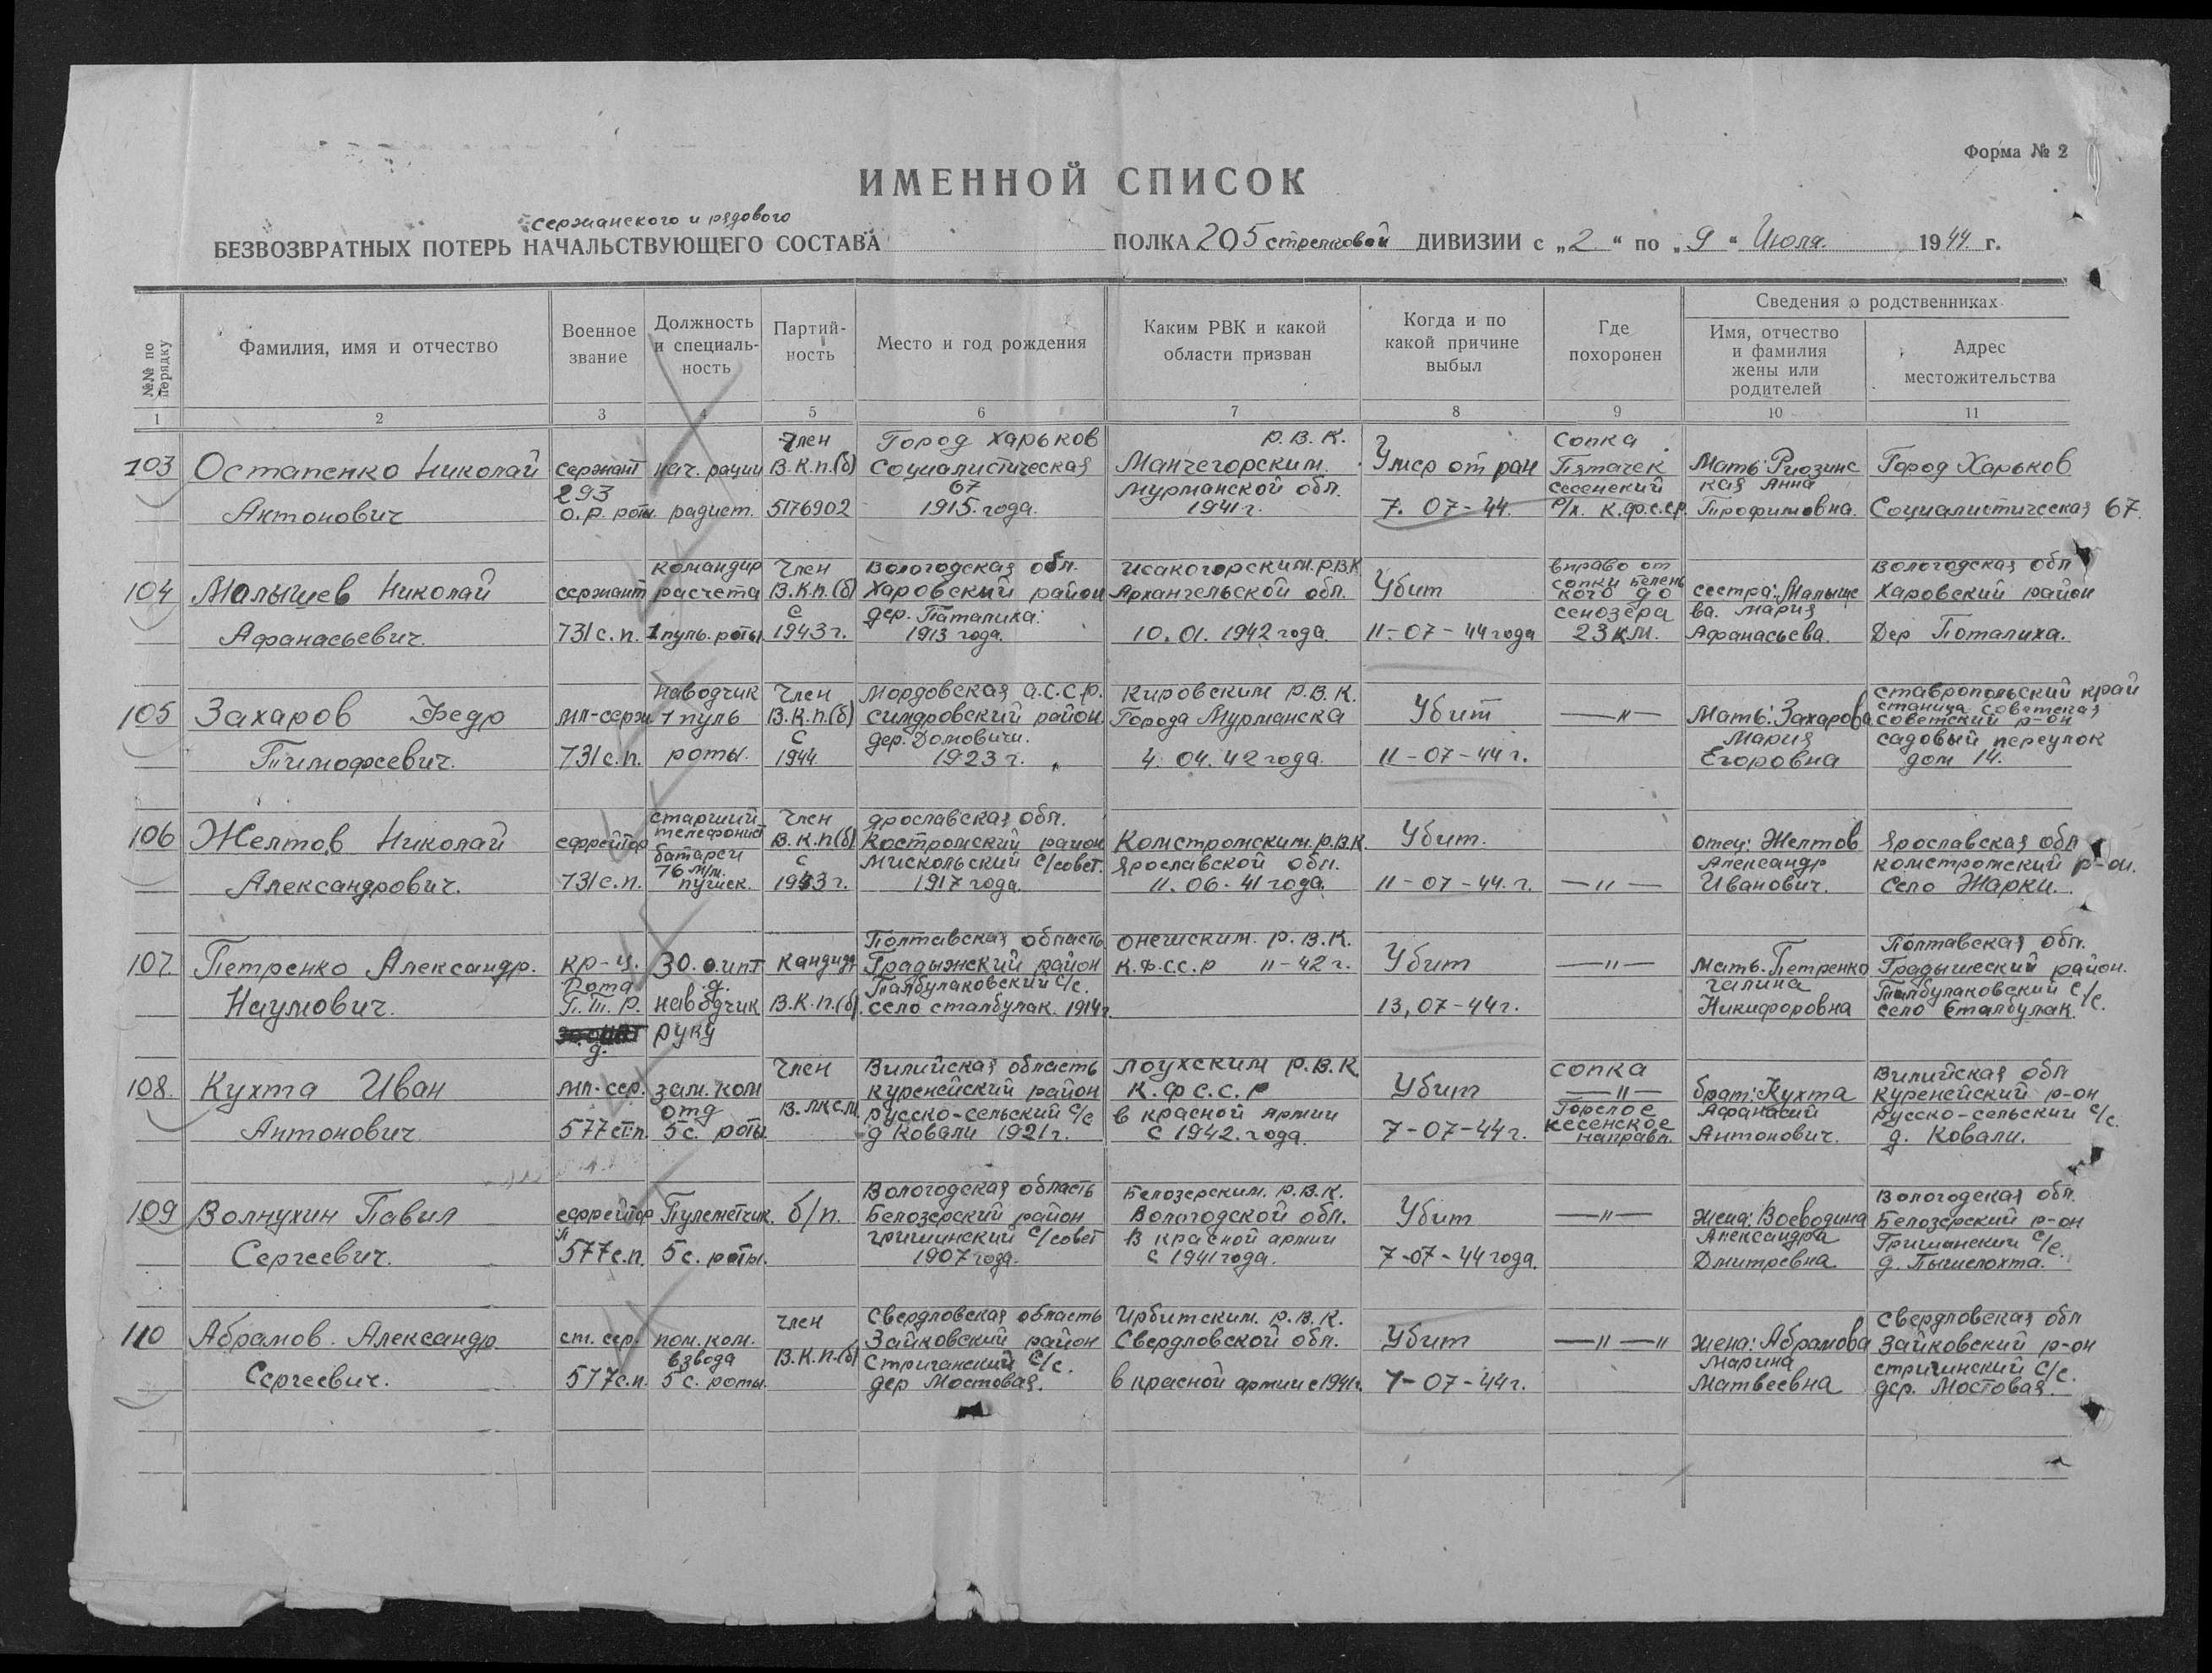 Форма № 2
ИМЕННОЙ СПИСОК
сержанского и рядового
БЕЗВОЗВРАТНЫХ ПОТЕРЬ НАЧАЛЬСТВУЮЩЕГО СОСТАВА ПОЛКА 205 стрелковой ДИВИЗИИ с „2“ по „9“ Июля. 1944 г.
№№ по порядку
Фамилия, имя и отчество
Военное звание
Должность и специаль-ность
Партий-ность
Место и год рождения
Каким РВК и какой области призван
Когда и по какой причине выбыл
Где похоронен
Сведения о родственниках
Имя, отчество и фамилия жены или родителей
Адрес местожительства
1 2 3 4 5 6 7 8 9 10 11
103
Остапенко Николай
Антонович
сержант
293
о.р. роты.
нач. рации
радист.
Член
В.К.п.(б)
5176902
Город Харьков
Социалистическая
67
1915. года.
р.в.к.
Манчегорским.
Мурманской обл.
1941 г.
Умер от ран
7. 07-44.
сопка
Пятачек
К.ф.с.ср.
Мать:
кая Анна
Трофимовна.
Город Харьков
Социалистическая 67.
104
Малышев Николай
Афанасьевич.
сержант
731 с.п.
командир
расчета
1 пуль. роты
Член
В.К.п.(б)
с
1943 г.
Вологодская обл.
Харовский район
дер. Паталиха.
1913 года.
Исакогорским. р.В.К
Архангельской обл.
10. 01. 1942 года.
Убит
11-07-44 года
вправо от
сопки белень
кого до
сенозера
23 км.
сестра: Малыше
ва. Мария
Афанасьева.
Вологодская обл
Харовский район
Дер Поталиха.
105
Захаров Федр
Тимофеевич.
мл-серж
731 с.п.
наводчик
1 пуль
роты.
Член
В.К.п.(б)
с
1944
Мордовская а.с.с.р.
симдровский район.
дер. Домовичи.
1923 г.
Кировским р.в.к.
Города Мурманска
4. 04. 42 года.
Убит
11-07-44 г.
—"—
Мать: Захарова
Мария
Егоровна
ставропольский край
станица советская
советский р-он
садовый переулок
дом 14.
106
Желтов Николай
Александрович.
ефрейтор
731 с.п.
старший
телефонист
батареи
76 м/м.
пушек.
Член
В.К.п(б)
с
1943 г.
ярославская обл.
Костромский район
Мискольский с/совет.
1917 года.
Комстромским. р.в.к
Ярославской обл.
11. 06. 41 года.
Убит.
11-07-44. г.
—"—
отец: Желтов
Александр
Иванович.
Ярославская обл
комстромский р-он.
Село Жарки.
107.
Петренко Александр.
Наумович.
кр-ц.
Рота
П.Т.Р.
30. о.ипт
д.
наводчик
руку
Кандидат
В.К.п.(б).
Полтавская область.
Градыжский район
Талбулаковский с/с.
село сталбулак. 1914 г.
онегиским. р.в.к.
К.ф.сс.р 11-42 г.
Убит
13, 07-44 г.
—"—
Мать. Петренко
Галина
Никифоровна
Полтавская обл.
Градышеский район.
Талбулаковский с/с.
село Сталбулак.
108.
Кухта Иван
Антонович
мл-сер.
577 сп.
зам. ком
отд
5 с. роты.
Член
В.лкс.м
Вилийская область
куренейский район
русско-сельский с/с
д Ковали 1921 г.
лоухским р.в.к.
К.ф с.с.р
в красной армии
с 1942. года.
Убит
7-07-44 г.
сопка
—"—
Горелое
кесенское
направл.
брат: Кухта
Афанасий
Антонович.
Вилийская обл
куренейский р-он
русско-сельский с/с.
д. Ковали.
109
Волнухин Павил
Сергеевич.
ефрейтор
577 с.п.
Пулеметчик.
5 с. роты.
б/п.
Вологодская область
Белозерский район
гришинский с/совет
1907 года.
Белозерским. р.в.к.
Вологодской обл.
В красной армии
с 1941 года.
Убит
7-07-44 года.
—"—
жена: Воеводина
Александра
Дмитревна
Вологодская обл.
Белозерский р-он
Гришинский с/с.
д. Пышелохта.
110
Абрамов. Александр.
Сергеевич.
ст. сер.
577 с.п.
пом. ком.
взвода
5 с. роты.
Член
В.К.п.(б)
Свердловская область
Зайковский район
Стриганский с/с.
дер Мостовая.
Ирбитским. р.в.к.
Свердловской обл.
в красной армии с 1941 г.
Убит
7-07-44 г.
—"—"
жена: Абрамова
Марина
Матвеевна
Свердловская обл
Зайковский р-он
стригинский с/с.
дер. Мостовая.